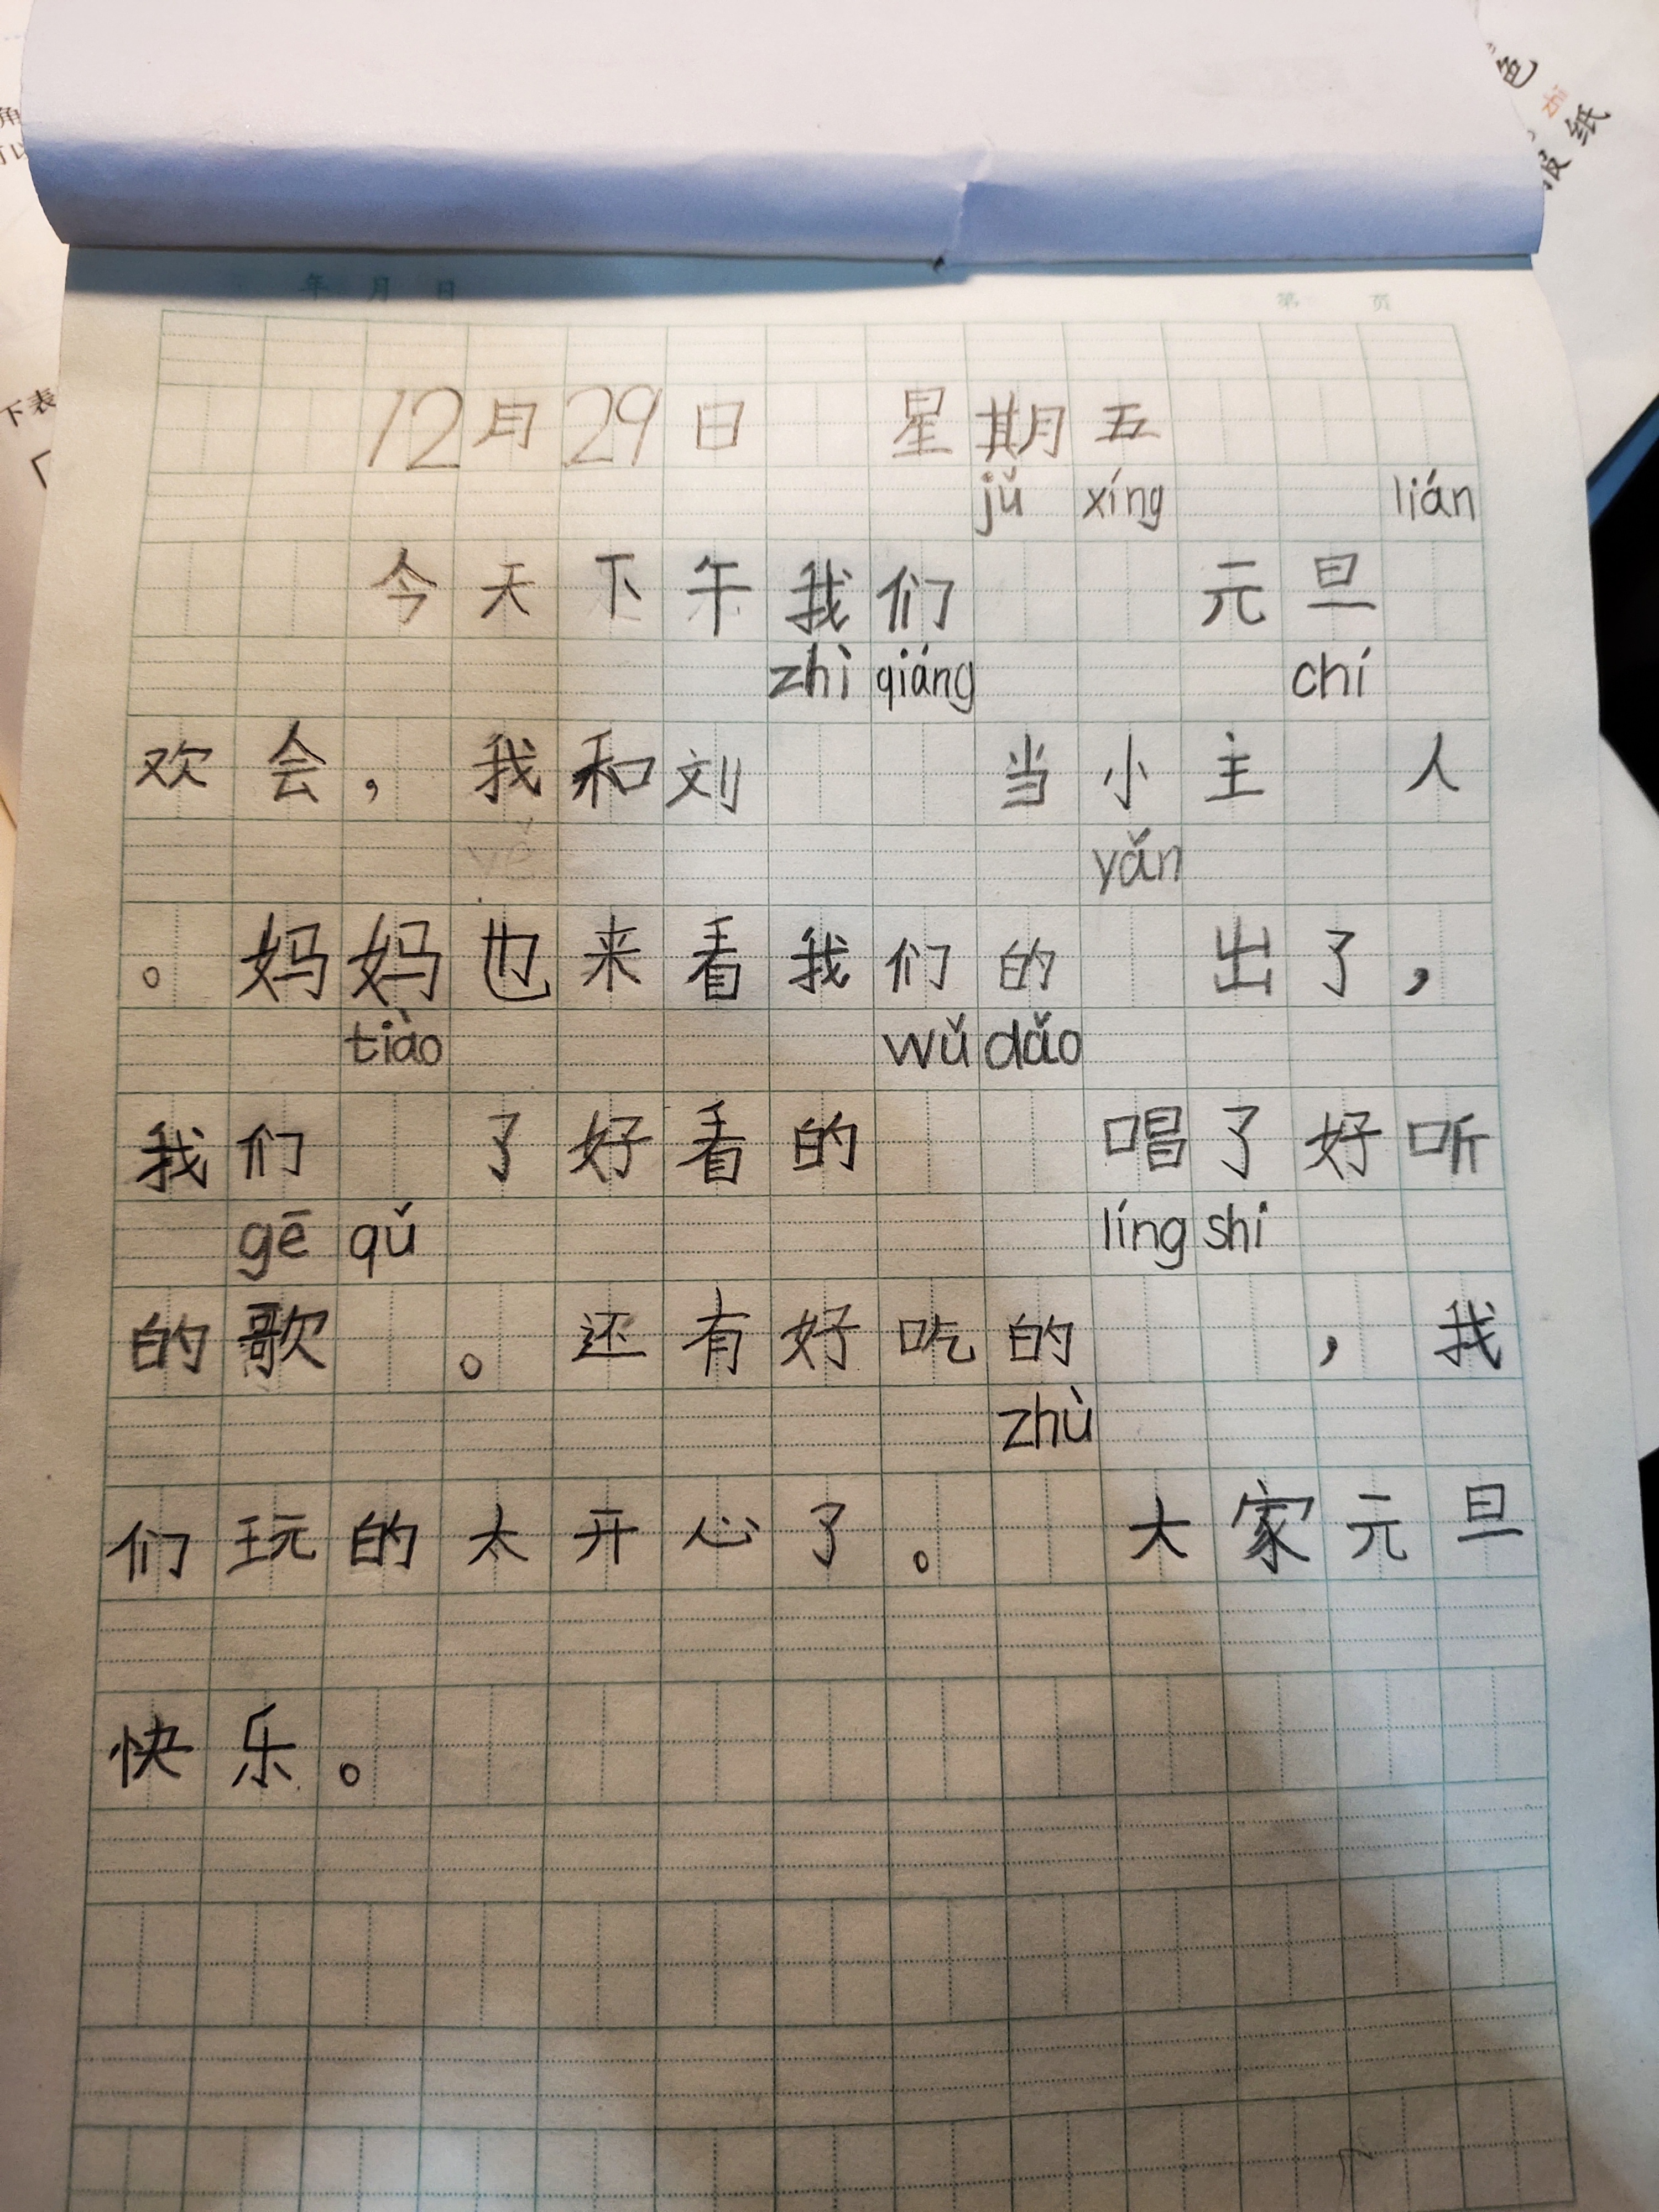 色
报纸
角
下表
年 月 日 第 页
12月29日 星期五
jǔ xíng lián
今天下午我们 元旦
zhì qiáng chí
欢会，我和刘 当小主 人
yě yǎn
。妈妈也来看我们的 出了，
tiào wǔ dǎo
我们 了好看的 唱了好听
gē qǔ líng shi
的歌 。还有好吃的 ，我
zhù
们玩的太开心了。 大家元旦
快乐。